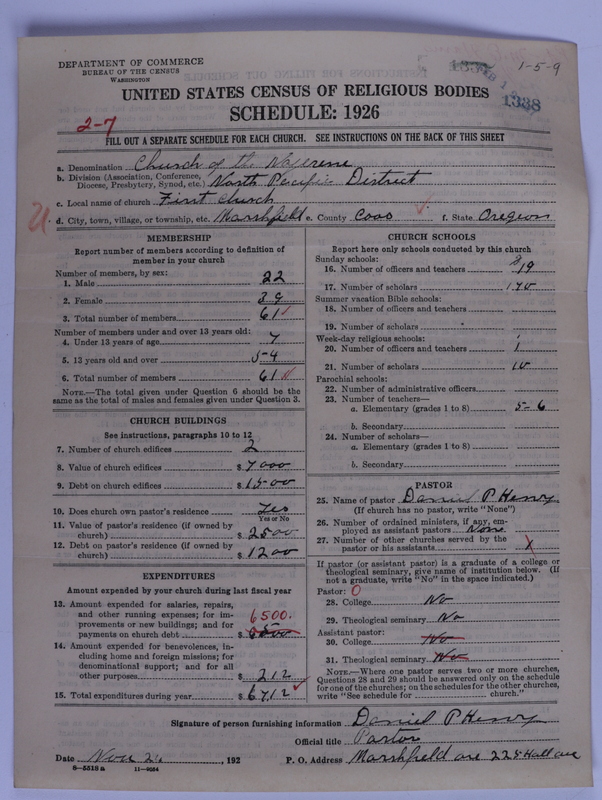 DEPARTMENT OF COMMERCE
BUREAU OF THE CENSUS
WASHINGTON
1-5-9
1338
UNITED STATES CENSUS OF RELIGIOUS BODIES
SCHEDULE: 1926
2-7
FILL OUT A SEPARATE SCHEDULE FOR EACH CHURCH. SEE INSTRUCTIONS ON THE BACK OF THIS SHEET
a. Denomination Church of the Nazerene
b. Division (Association, Conference, Diocese, Presbytery, Synod, etc.) North Pacific District
c. Local name of church First church
d. City, town, village, or township, etc. Marshfield e. County Coos f. State Oregon
MEMBERSHIP
Report number of members according to definition of
member in your church
Number of members, by sex:
1. Male 22
2. Female 39
3. Total number of members 61
Number of members under and over 13 years old:
4. Under 13 years of age 7
5. 13 years old and over 54
6. Total number of members 61
NOTE.—The total given under Question 6 should be the
same as the total of males and females given under Question 3.
CHURCH BUILDINGS
See instructions, paragraphs 10 to 12
7. Number of church edifices 2
8. Value of church edifices $ 7000
9. Debt on church edifices $ 1500
10. Does church own pastor's residence Yes
Yes or No
11. Value of pastor's residence (if owned by
church) $ 2500
12. Debt on pastor's residence (if owned by
church) $ 1200
EXPENDITURES
Amount expended by your church during last fiscal year
13. Amount expended for salaries, repairs,
and other running expenses; for im-
provements or new buildings; and for
payments on church debt $ 6500.
14. Amount expended for benevolences, in-
cluding home and foreign missions; for
denominational support; and for all
other purposes $ 212
15. Total expenditures during year $ 6712
CHURCH SCHOOLS
Report here only schools conducted by this church
Sunday schools:
16. Number of officers and teachers 19
17. Number of scholars 170
Summer vacation Bible schools:
18. Number of officers and teachers
19. Number of scholars
Week-day religious schools:
20. Number of officers and teachers 1
21. Number of scholars 10
Parochial schools:
22. Number of administrative officers
23. Number of teachers—
a. Elementary (grades 1 to 8) 5-6
b. Secondary
24. Number of scholars—
a. Elementary (grades 1 to 8)
b. Secondary
PASTOR
25. Name of pastor Daniel P Henry
(If church has no pastor, write "None")
26. Number of ordained ministers, if any, em-
ployed as assistant pastors None
27. Number of other churches served by the
pastor or his assistants
If pastor (or assistant pastor) is a graduate of a college or
theological seminary, give name of institution below. (If
not a graduate, write "No" in the space indicated.)
Pastor: 0
28. College No
29. Theological seminary No
Assistant pastor:
30. College No
31. Theological seminary No
NOTE.—Where one pastor serves two or more churches,
Questions 28 and 29 should be answered only on the schedule
for one of the churches; on the schedules for the other churches,
write "See schedule for church."
Signature of person furnishing information Daniel P Henry
Official title Pastor
Date Nov 26, 192 P. O. Address Marshfield ore 225 Hall ave
8-5518 a 11-9054